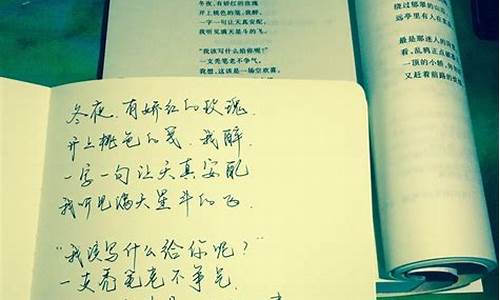 冬夜，有娇红的玫瑰
开上桃色的笺，我醉，
一字一句让天真安配，
我听见满天星斗的飞。
“我该写什么给你呢？”
一支秃笔老不争气，
我想，这该是一场空欢喜。
绕过郁翠的山
远亭里有人在
最是那迷人的
看，乱鸦正点破
一顶的小轿，
又赶着前路的
冬夜、有娇红的玫瑰、
开上桃色的笺、我醉、
一字一句让天真安配
我听见满天星斗的飞
“我该写什么给你呢？”
一支秃笔老不争气